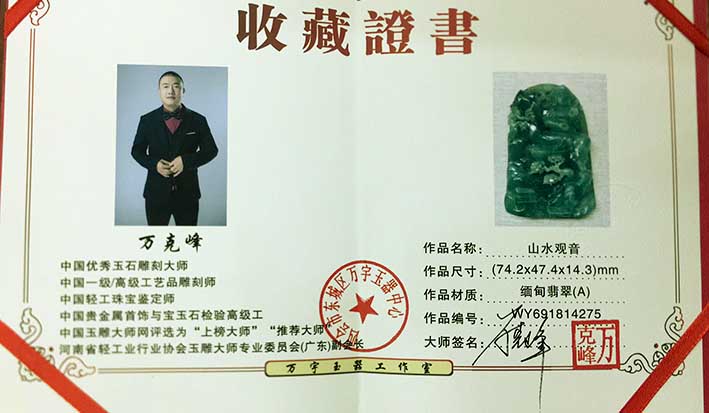 收藏證書
万克峰
中国优秀玉石雕刻大师
中国一级/高级工艺品雕刻师
中国轻工珠宝鉴定师
中国贵金属首饰与宝玉石检验高级工
中国玉雕大师网评选为“上榜大师”“推荐大师”
河南省轻工业行业协会玉雕大师专业委员会(广东)副会长
市东城区万字玉器中心
作品名称: 山水观音
作品尺寸: (74.2x47.4x14.3)mm
作品材质: 缅甸翡翠(A)
作品编号: WY691814275
大师签名:
万克峰
万字玉器工作室